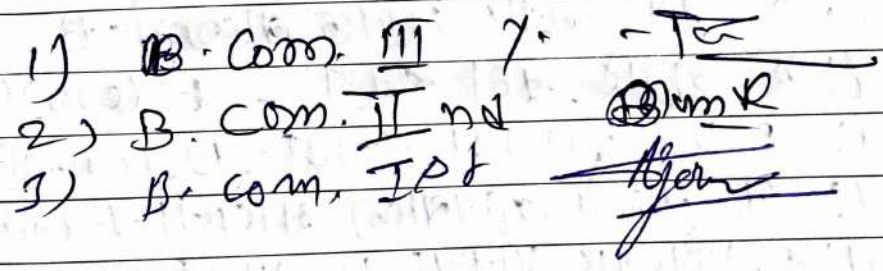 1) B. Com. III y. -
2) B. Com. II nd
3) B. Com. Ist